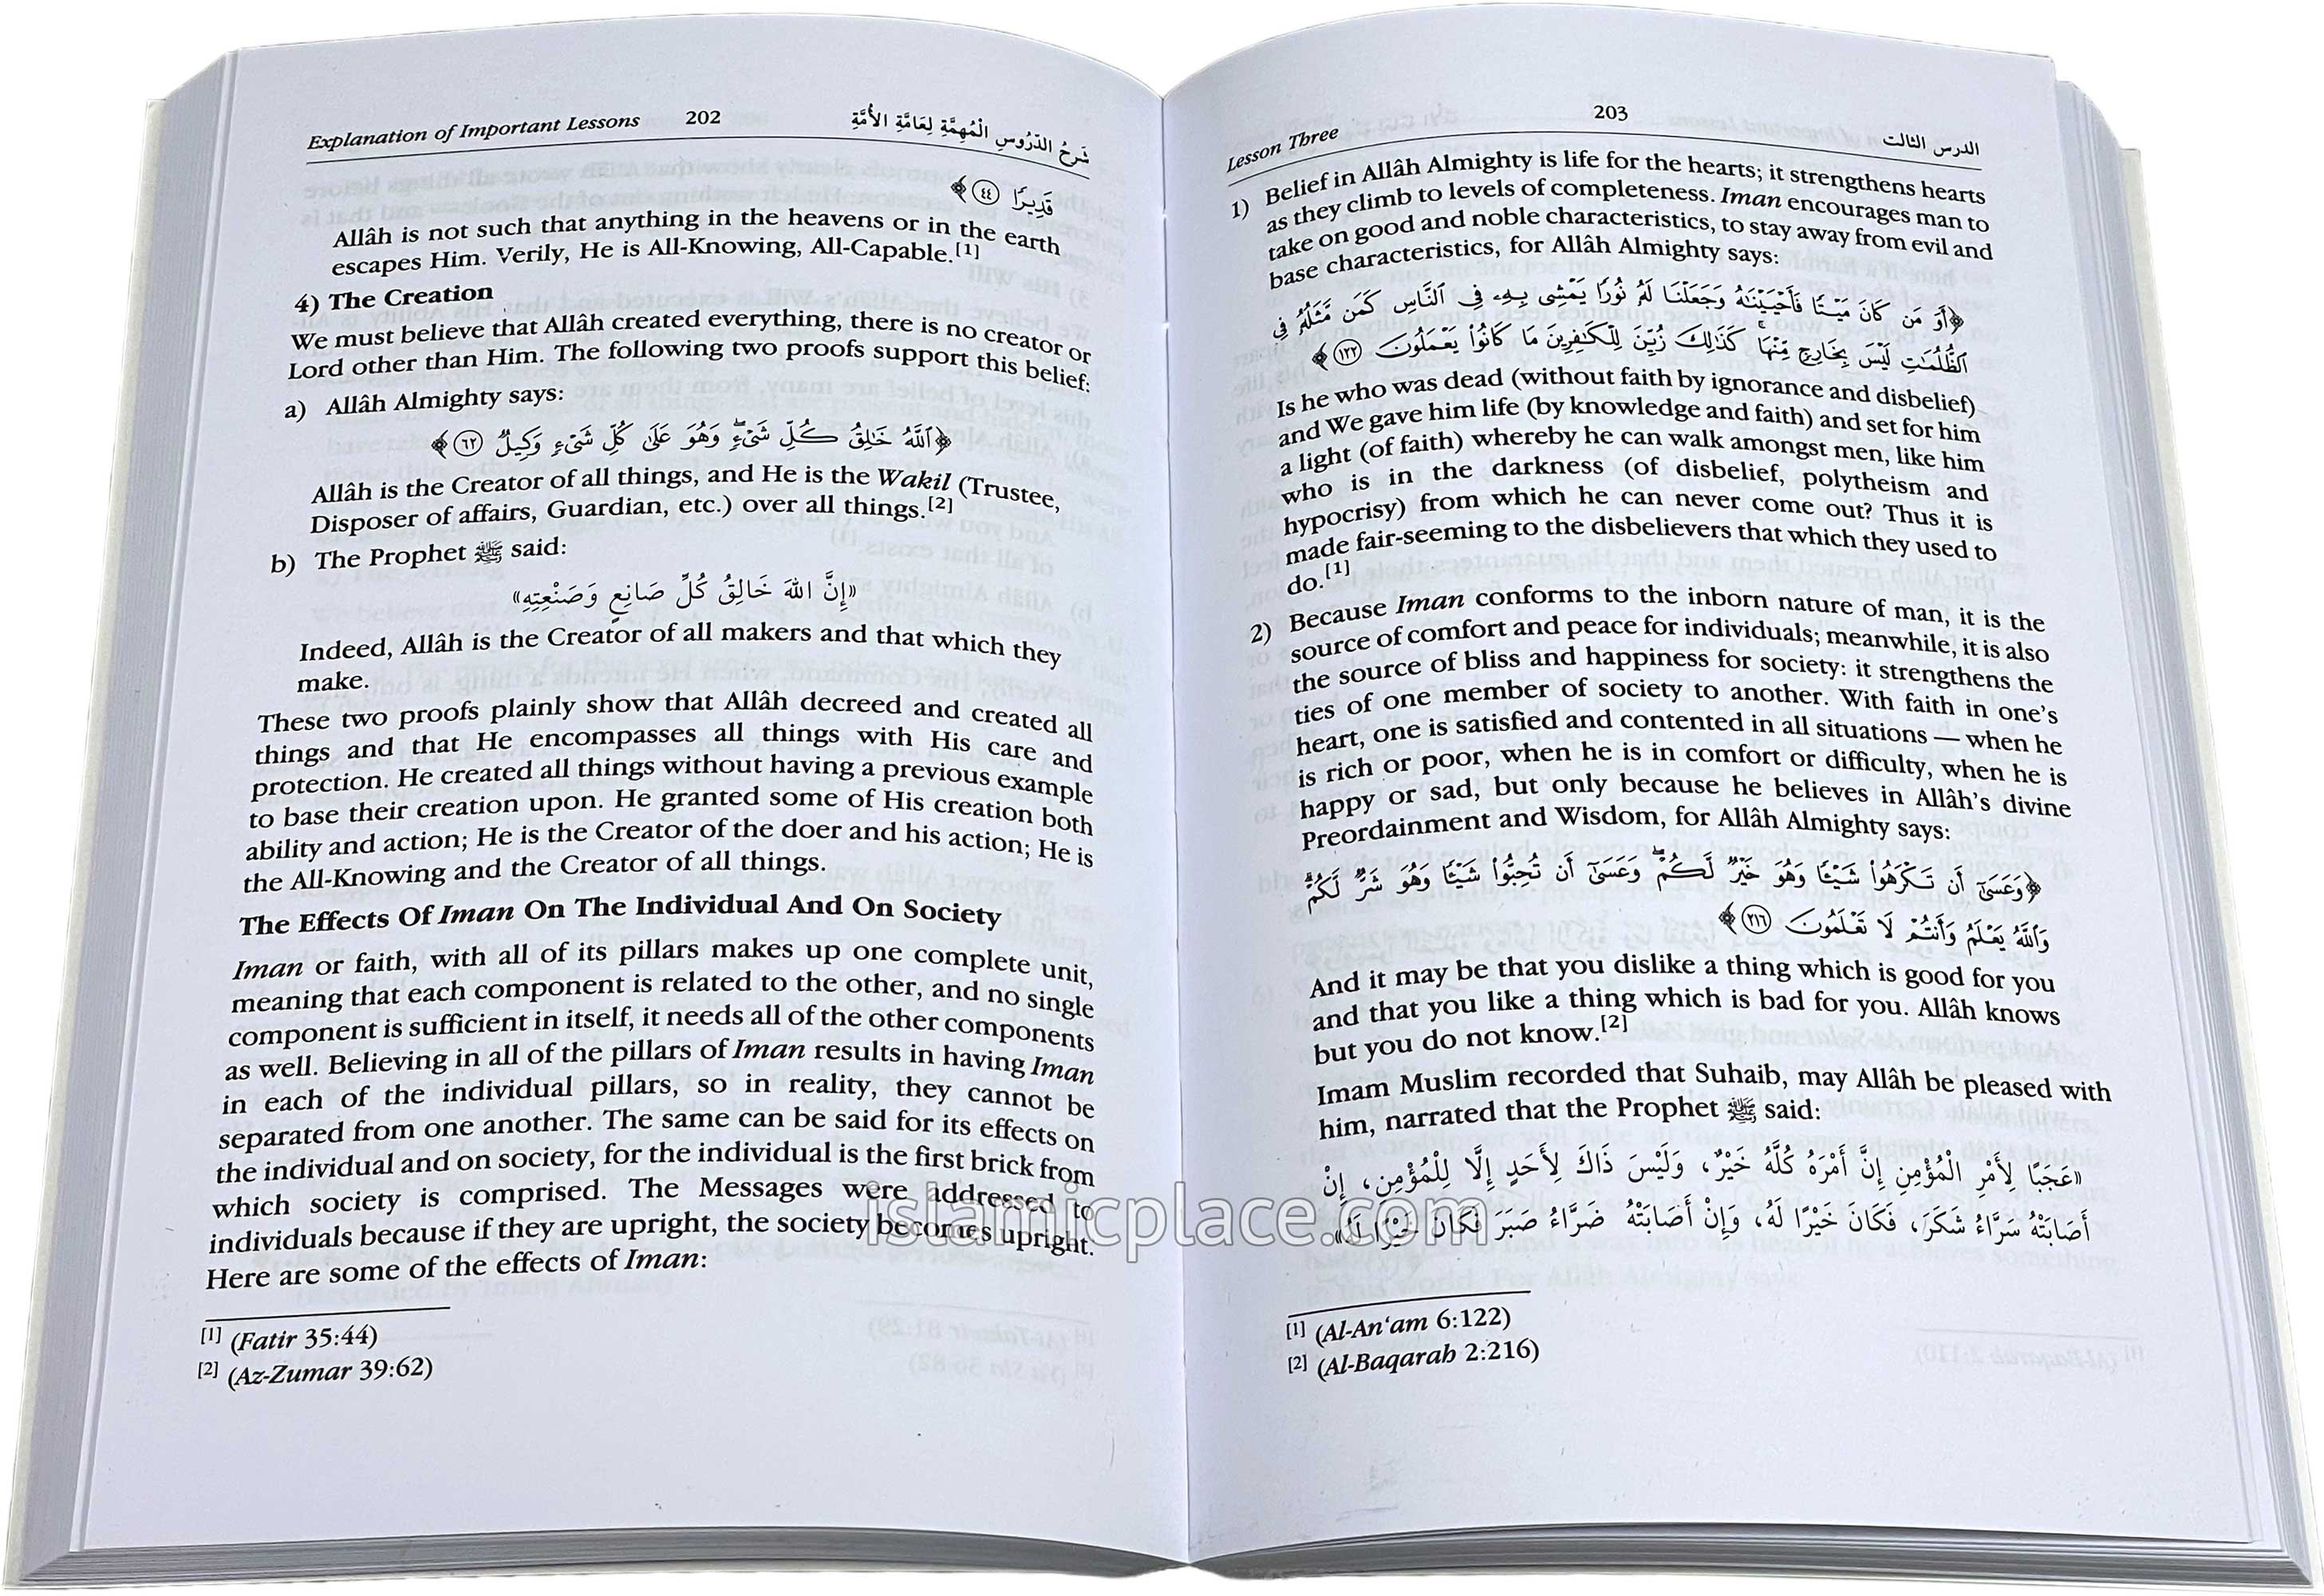 Explanation of Important Lessons 202 شَرحُ الدُّرُوسِ الْمُهِمَّةِ لِعَامَّةِ الأُمَّةِ
قَدِيرًا ﴿٤٤﴾
Allâh is not such that anything in the heavens or in the earth
escapes Him. Verily, He is All-Knowing, All-Capable.[1]
4) The Creation
We must believe that Allâh created everything, there is no creator or
Lord other than Him. The following two proofs support this belief:
a) Allâh Almighty says:
﴿ٱللَّهُ خَـٰلِقُ كُـلِّ شَىْءٍ ۖ وَهُوَ عَلَىٰ كُلِّ شَىْءٍ وَكِيلٌ ٦٢﴾
Allâh is the Creator of all things, and He is the Wakil (Trustee,
Disposer of affairs, Guardian, etc.) over all things.[2]
b) The Prophet ﷺ said:
«إِنَّ اللهَ خَالِقُ كُلِّ صَانِعٍ وَصَنْعِتِهِ»
Indeed, Allâh is the Creator of all makers and that which they
make.
These two proofs plainly show that Allâh decreed and created all
things and that He encompasses all things with His care and
protection. He created all things without having a previous example
to base their creation upon. He granted some of His creation both
ability and action; He is the Creator of the doer and his action; He is
the All-Knowing and the Creator of all things.
The Effects Of Iman On The Individual And On Society
Iman or faith, with all of its pillars makes up one complete unit,
meaning that each component is related to the other, and no single
component is sufficient in itself, it needs all of the other components
as well. Believing in all of the pillars of Iman results in having Iman
in each of the individual pillars, so in reality, they cannot be
separated from one another. The same can be said for its effects on
the individual and on society, for the individual is the first brick from
which society is comprised. The Messages were addressed to
individuals because if they are upright, the society becomes upright.
Here are some of the effects of Iman:
[1] (Fatir 35:44)
[2] (Az-Zumar 39:62)
Lesson Three 203 الدرس الثالث
1) Belief in Allâh Almighty is life for the hearts; it strengthens hearts
as they climb to levels of completeness. Iman encourages man to
take on good and noble characteristics, to stay away from evil and
base characteristics, for Allâh Almighty says:
﴿أَوَ مَن كَانَ مَيْتًا فَأَحْيَيْنَـٰهُ وَجَعَلْنَا لَهُۥ نُورًا يَمْشِى بِهِۦ فِى ٱلنَّاسِ كَمَن مَّثَلُهُۥ فِى
ٱلظُّلُمَـٰتِ لَيْسَ بِخَارِجٍ مِّنْهَا ۚ كَذَٰلِكَ زُيِّنَ لِلْكَـٰفِرِينَ مَا كَانُوا۟ يَعْمَلُونَ ١٢٢﴾
Is he who was dead (without faith by ignorance and disbelief)
and We gave him life (by knowledge and faith) and set for him
a light (of faith) whereby he can walk amongst men, like him
who is in the darkness (of disbelief, polytheism and
hypocrisy) from which he can never come out? Thus it is
made fair-seeming to the disbelievers that which they used to
do.[1]
2) Because Iman conforms to the inborn nature of man, it is the
source of comfort and peace for individuals; meanwhile, it is also
the source of bliss and happiness for society: it strengthens the
ties of one member of society to another. With faith in one's
heart, one is satisfied and contented in all situations — when he
is rich or poor, when he is in comfort or difficulty, when he is
happy or sad, but only because he believes in Allâh's divine
Preordainment and Wisdom, for Allâh Almighty says:
﴿وَعَسَىٰٓ أَن تَكْرَهُوا۟ شَيْـًٔا وَهُوَ خَيْرٌ لَّكُمْ ۖ وَعَسَىٰٓ أَن تُحِبُّوا۟ شَيْـًٔا وَهُوَ شَرٌّ لَّكُمْ ۗ
وَٱللَّهُ يَعْلَمُ وَأَنتُمْ لَا تَعْلَمُونَ ٢١٦﴾
And it may be that you dislike a thing which is good for you
and that you like a thing which is bad for you. Allâh knows
but you do not know.[2]
Imam Muslim recorded that Suhaib, may Allâh be pleased with
him, narrated that the Prophet ﷺ said:
«عَجَبًا لِأَمْرِ الْمُؤْمِنِ إِنَّ أَمْرَهُ كُلَّهُ خَيْرٌ، وَلَيْسَ ذَاكَ لِأَحَدٍ إِلَّا لِلْمُؤْمِنِ، إِنْ
أَصَابَتْهُ سَرَّاءُ شَكَرَ، فَكَانَ خَيْرًا لَهُ، وَإِنْ أَصَابَتْهُ ضَرَّاءُ صَبَرَ فَكَانَ خَيْرًا لَهُ»
[1] (Al-An'am 6:122)
[2] (Al-Baqarah 2:216)
islamicplace.com